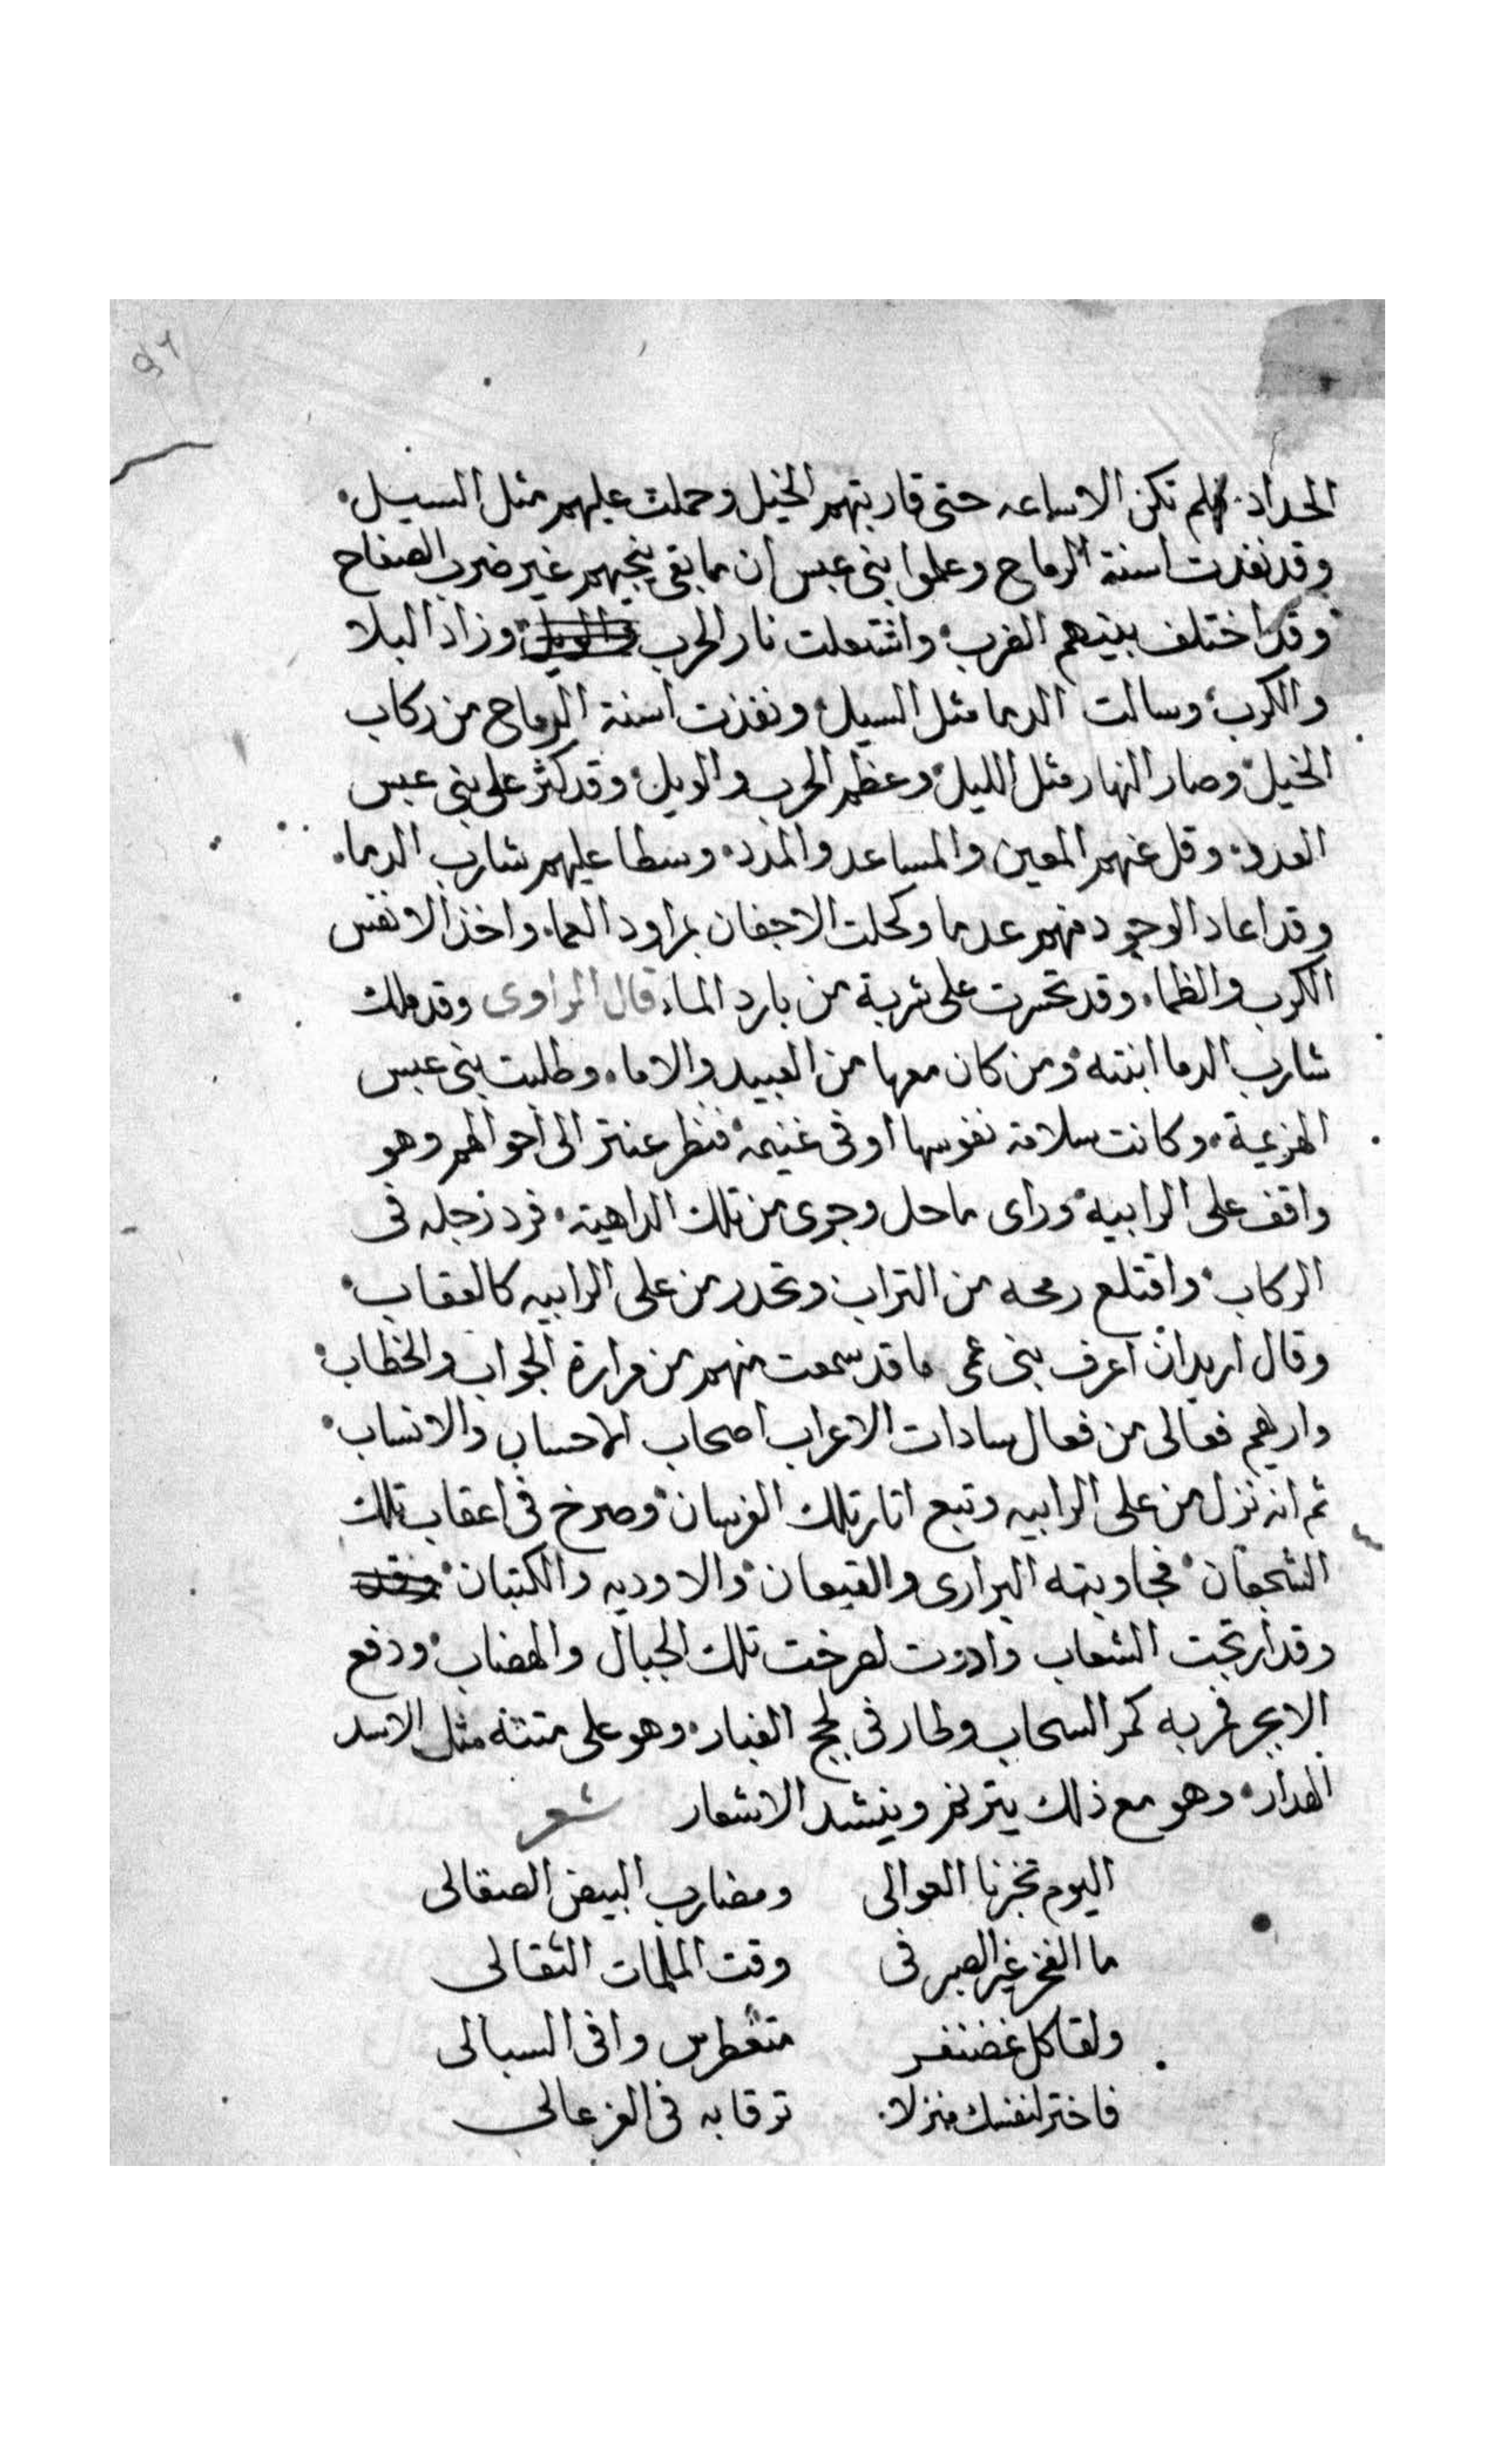 ٩٦
الحداد. فلم تكن الا ساعه حتى قاربتهم الخيل وحملت عليهم مثل السيل.
وقد نفدت اسنة الرماح وعلموا بنى عبس ان ما بقى ينجيهم غير ضرب الصفاح
وقد اختلف بينهم الضرب وانشتعلت نار الحرب وزاد البلا
والكرب وسالت الدما مثل السيل ونفذت اسنة الرماح من ركاب
الخيل وصار النهار مثل الليل وعظم الحرب والويل وقد كثر على بنى عبس
العدد. وقل عنهم المعين والمساعد والمدد. وسطا عليهم شارب الدما.
وقد اعاد الوجود منهم عدما وكحلت الاجفان بمراود العما. واخذ الانفس
الكرب والظما. وقد تحسرت على شربة من بارد الماء. قال الراوى وقد ملك
شارب الدما ابنته ومن كان معها من العبيد والاما. وطلبت بنى عبس
الهزيمة. وكانت سلامة نفوسها اوفى غنيمه فنظر عنتر الى احوالهم وهو
واقف على الرابيه وراى ما حل وجرى من تلك الداهية. فرد رجله فى
الركاب واقتلع رمحه من التراب وتحدر من على الرابيه كالعقاب.
وقال اريد ان اعرف بنى عمى ما قد سمعت منهم من مرارة الجواب والخطاب.
واريهم فعالى من فعال سادات الاعراب اصحاب الاحساب والانساب.
ثم انه نزل من على الرابيه وتبع اثار تلك الفرسان وصرخ فى اعقاب تلك
الشجعان فجاوبته البرارى والقيعان والاوديه والكثبان وقد
وقد ارتجت الشعاب وادوت لصرخت تلك الجبال والهضاب ودفع
الابجر فمر به كمر السحاب وطار فى لجج الغبار. وهو على متنه مثل الاسد
الهدار. وهو مع ذلك يترنم وينشد الاشعار شعر
اليوم تخبرنا العوالى ومضارب البيض الصقالى
ما الفخر غير الصبر فى وقت الملمات الثقالى
ولقا كل غضنفر متغطرس وافى السبالى
فاختر لنفسك منزلا. ترقا به فى العز عالى